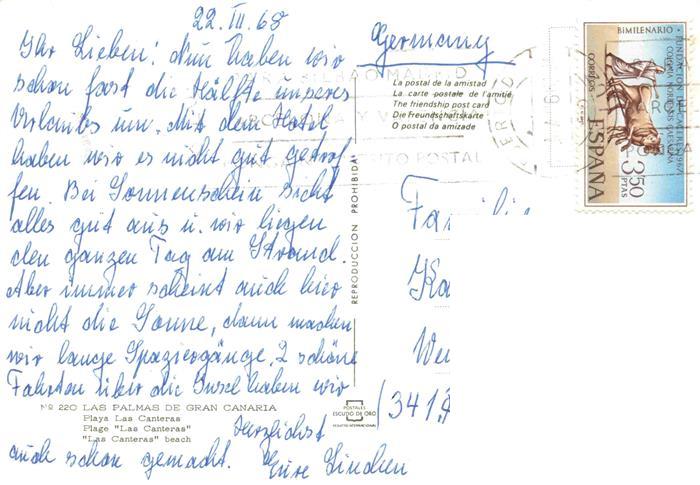 22. III. 68
Ihr Lieben! Nun haben wir
schon fast die Hälfte unseres
Urlaubs um. Mit dem Hotel
haben wir es nicht gut getrof
fen. Bei Sonnenschein sieht
alles gut aus u. wir liegen
den ganzen Tag am Strand.
Aber immer scheint auch hier
nicht die Sonne, dann machen
wir lange Spaziergänge. 2 schöne
Fahrten über die Insel haben wir
auch schon gemacht.
Herzlichst
Eure
Nº 220 LAS PALMAS DE GRAN CANARIA
Playa Las Canteras
Plage "Las Canteras"
"Las Canteras" beach
REPRODUCCION PROHIBIDA
POSTALES
ESCUDO DE ORO
Germany
La postal de la amistad
La carte postale de l'amitié
The friendship post card
Die Freundschaftskarte
O postal da amizade
BILBAO MADRID
POSTAL
BIMILENARIO
FUNDACION DE CACERES 1967
COLONIA NORBENSIS CAESARINA
CORREOS
ESPAÑA
3'50
PTAS
Famili
Ka
We
(341